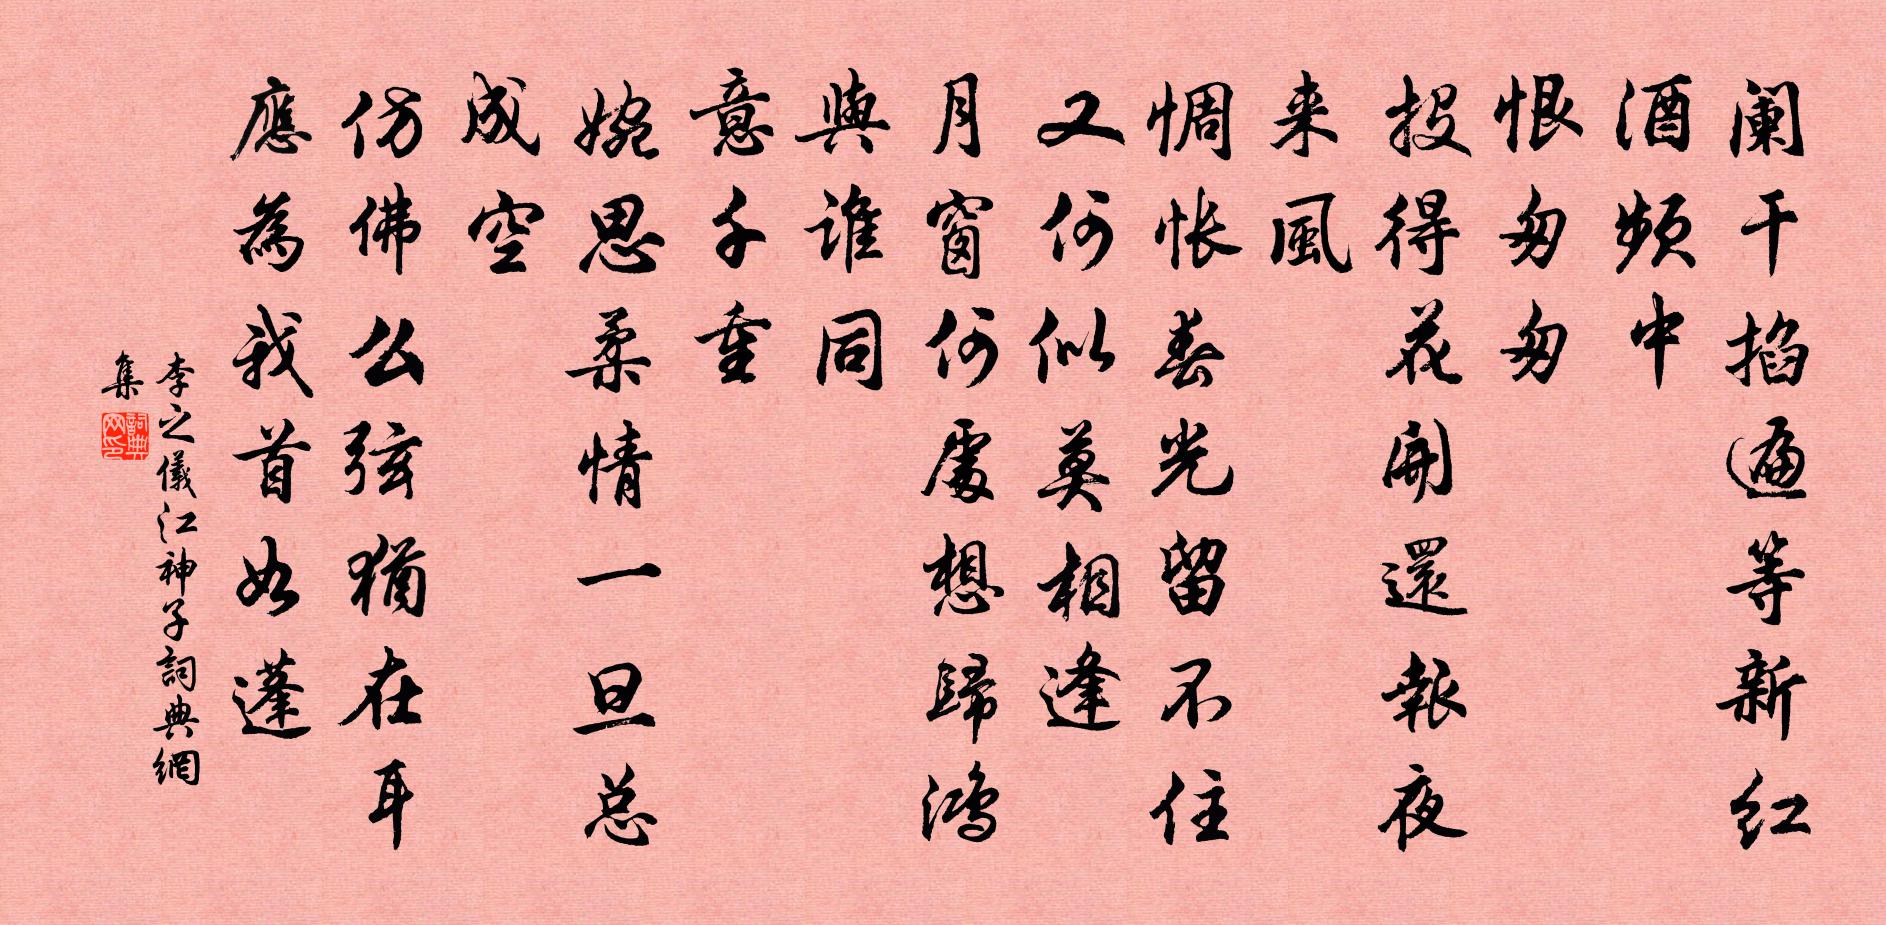 阑干掐遍等新红
酒频中
恨匆匆
投得花開還報夜
来風
惆怅春光留不住
又何似莫相逢
月窗何處想歸鸿
與谁同
意千重
婉思柔情一旦总
成空
仿佛么弦猶在耳
應為我首如蓬
李之儀江神子詞典網
集
詞典网印